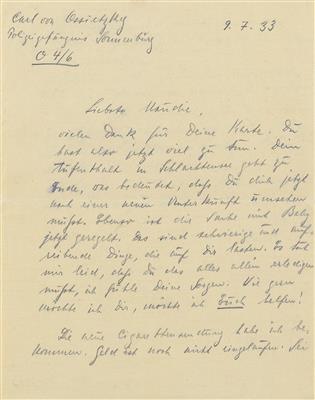 Carl von Ossietzky
Polizeigefängnis Sonnenburg
O 4/6
9. 7. 33
Liebste Maudie,
vielen Dank für Deine Karte. Du
hast also jetzt viel zu tun. Dein
Aufenthalt in Schlachtensee geht zu
Ende, was bedeutet, dass Du dich jetzt
nach einer neuen Unterkunft umsehen
musst. Ebenso ist die Sache mit Baby
jetzt geregelt. Das sind schwierige und auf-
reibende Dinge, die auf Dir lasten. Es tut
mir leid, dass du das alles allein erledigen
musst, ich fühle Deine Sorgen. Wie gern
möchte ich Dir, möchte ich Euch helfen!
Die neue Cigarettensendung habe ich be-
kommen. Geld ist noch nicht eingelaufen.